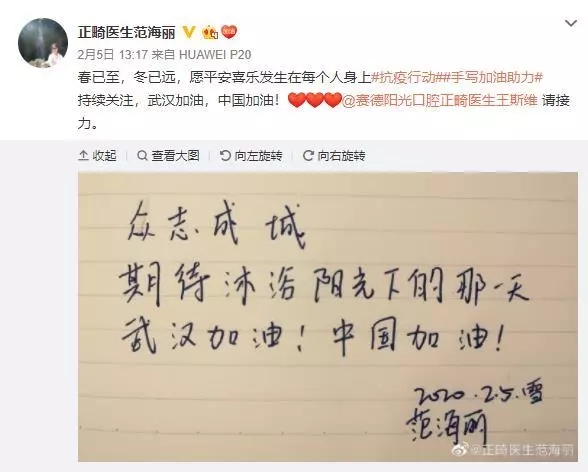 正畸医生范海丽
2月5日 13:17 来自 HUAWEI P20
春已至，冬已远，愿平安喜乐发生在每个人身上#抗疫行动##手写加油助力#
持续关注，武汉加油，中国加油！@赛德阳光口腔正畸医生王斯维 请接
力。
收起 查看大图 向左旋转 向右旋转
众志成城
期待沐浴阳光下的那一天
武汉加油！中国加油！
2020.2.5.雪
范海丽
@正畸医生范海丽